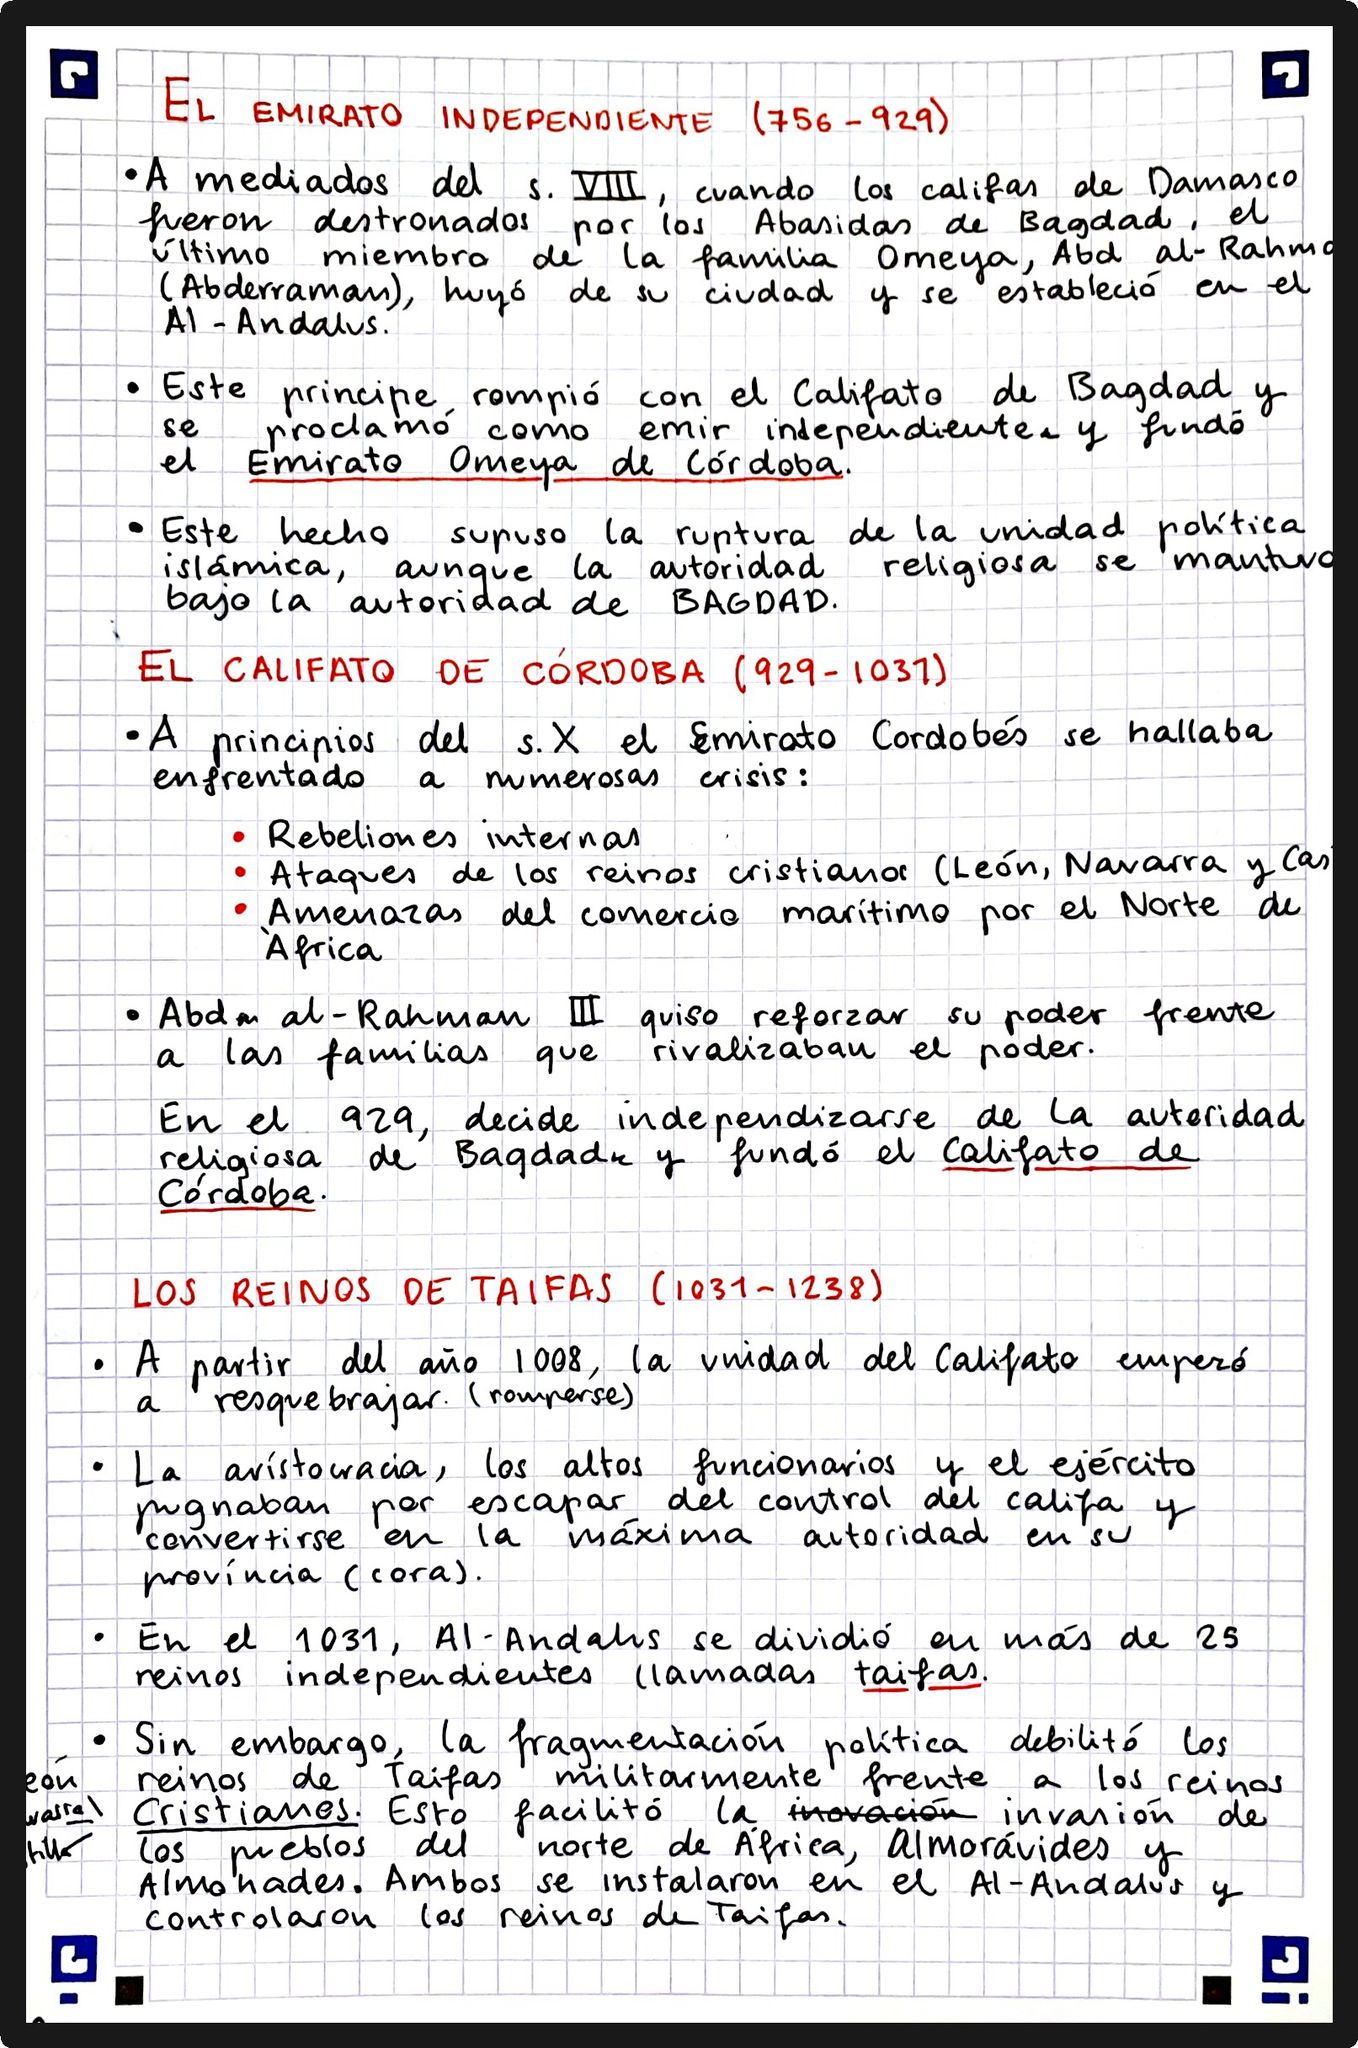 EL EMIRATO INDEPENDIENTE (756-929)
• A mediados del s. VIII, cuando los califas de Damasco
fueron destronados por los Abasidas de Bagdad, el
último miembro de la familia Omeya, Abd al-Rahma
(Abderraman), huyó de su ciudad y se estableció en el
Al-Andalus.
• Este principe rompió con el Califato de Bagdad y
se proclamó como emir independiente y fundó
el Emirato Omeya de Córdoba.
• Este hecho supuso la ruptura de la unidad política
islámica, aunque la autoridad religiosa se mantuvo
bajo la autoridad de BAGDAD.
EL CALIFATO DE CÓRDOBA (929-1031)
• A principios del s. X el Emirato Cordobés se hallaba
enfrentado a numerosas crisis:
• Rebeliones internas
• Ataques de los reinos cristianos (León, Navarra y Cas
• Amenazas del comercio marítimo por el Norte de
África
• Abd al-Rahman III quiso reforzar su poder frente
a las familias que rivalizaban el poder.
En el 929, decide independizarse de la autoridad
religiosa de Bagdad y fundó el Califato de
Córdoba.
LOS REINOS DE TAIFAS (1031-1238)
• A partir del año 1008, la unidad del Califato empezó
a resquebrajar. (romperse)
• La aristocracia, los altos funcionarios y el ejército
pugnaban por escapar del control del califa y
convertirse en la máxima autoridad en su
província (cora).
• En el 1031, Al-Andalus se dividió en más de 25
reinos independientes llamadas taifas.
• Sin embargo, la fragmentación política debilitó los
reinos de Taifas militarmente frente a los reinos
eón
Cristianos. Esto facilitó la inovación invasión de
varra
los pueblos del norte de África, Almorávides y
tilla
Almohades. Ambos se instalaron en el Al-Andalus y
controlaron los reinos de Taifas.